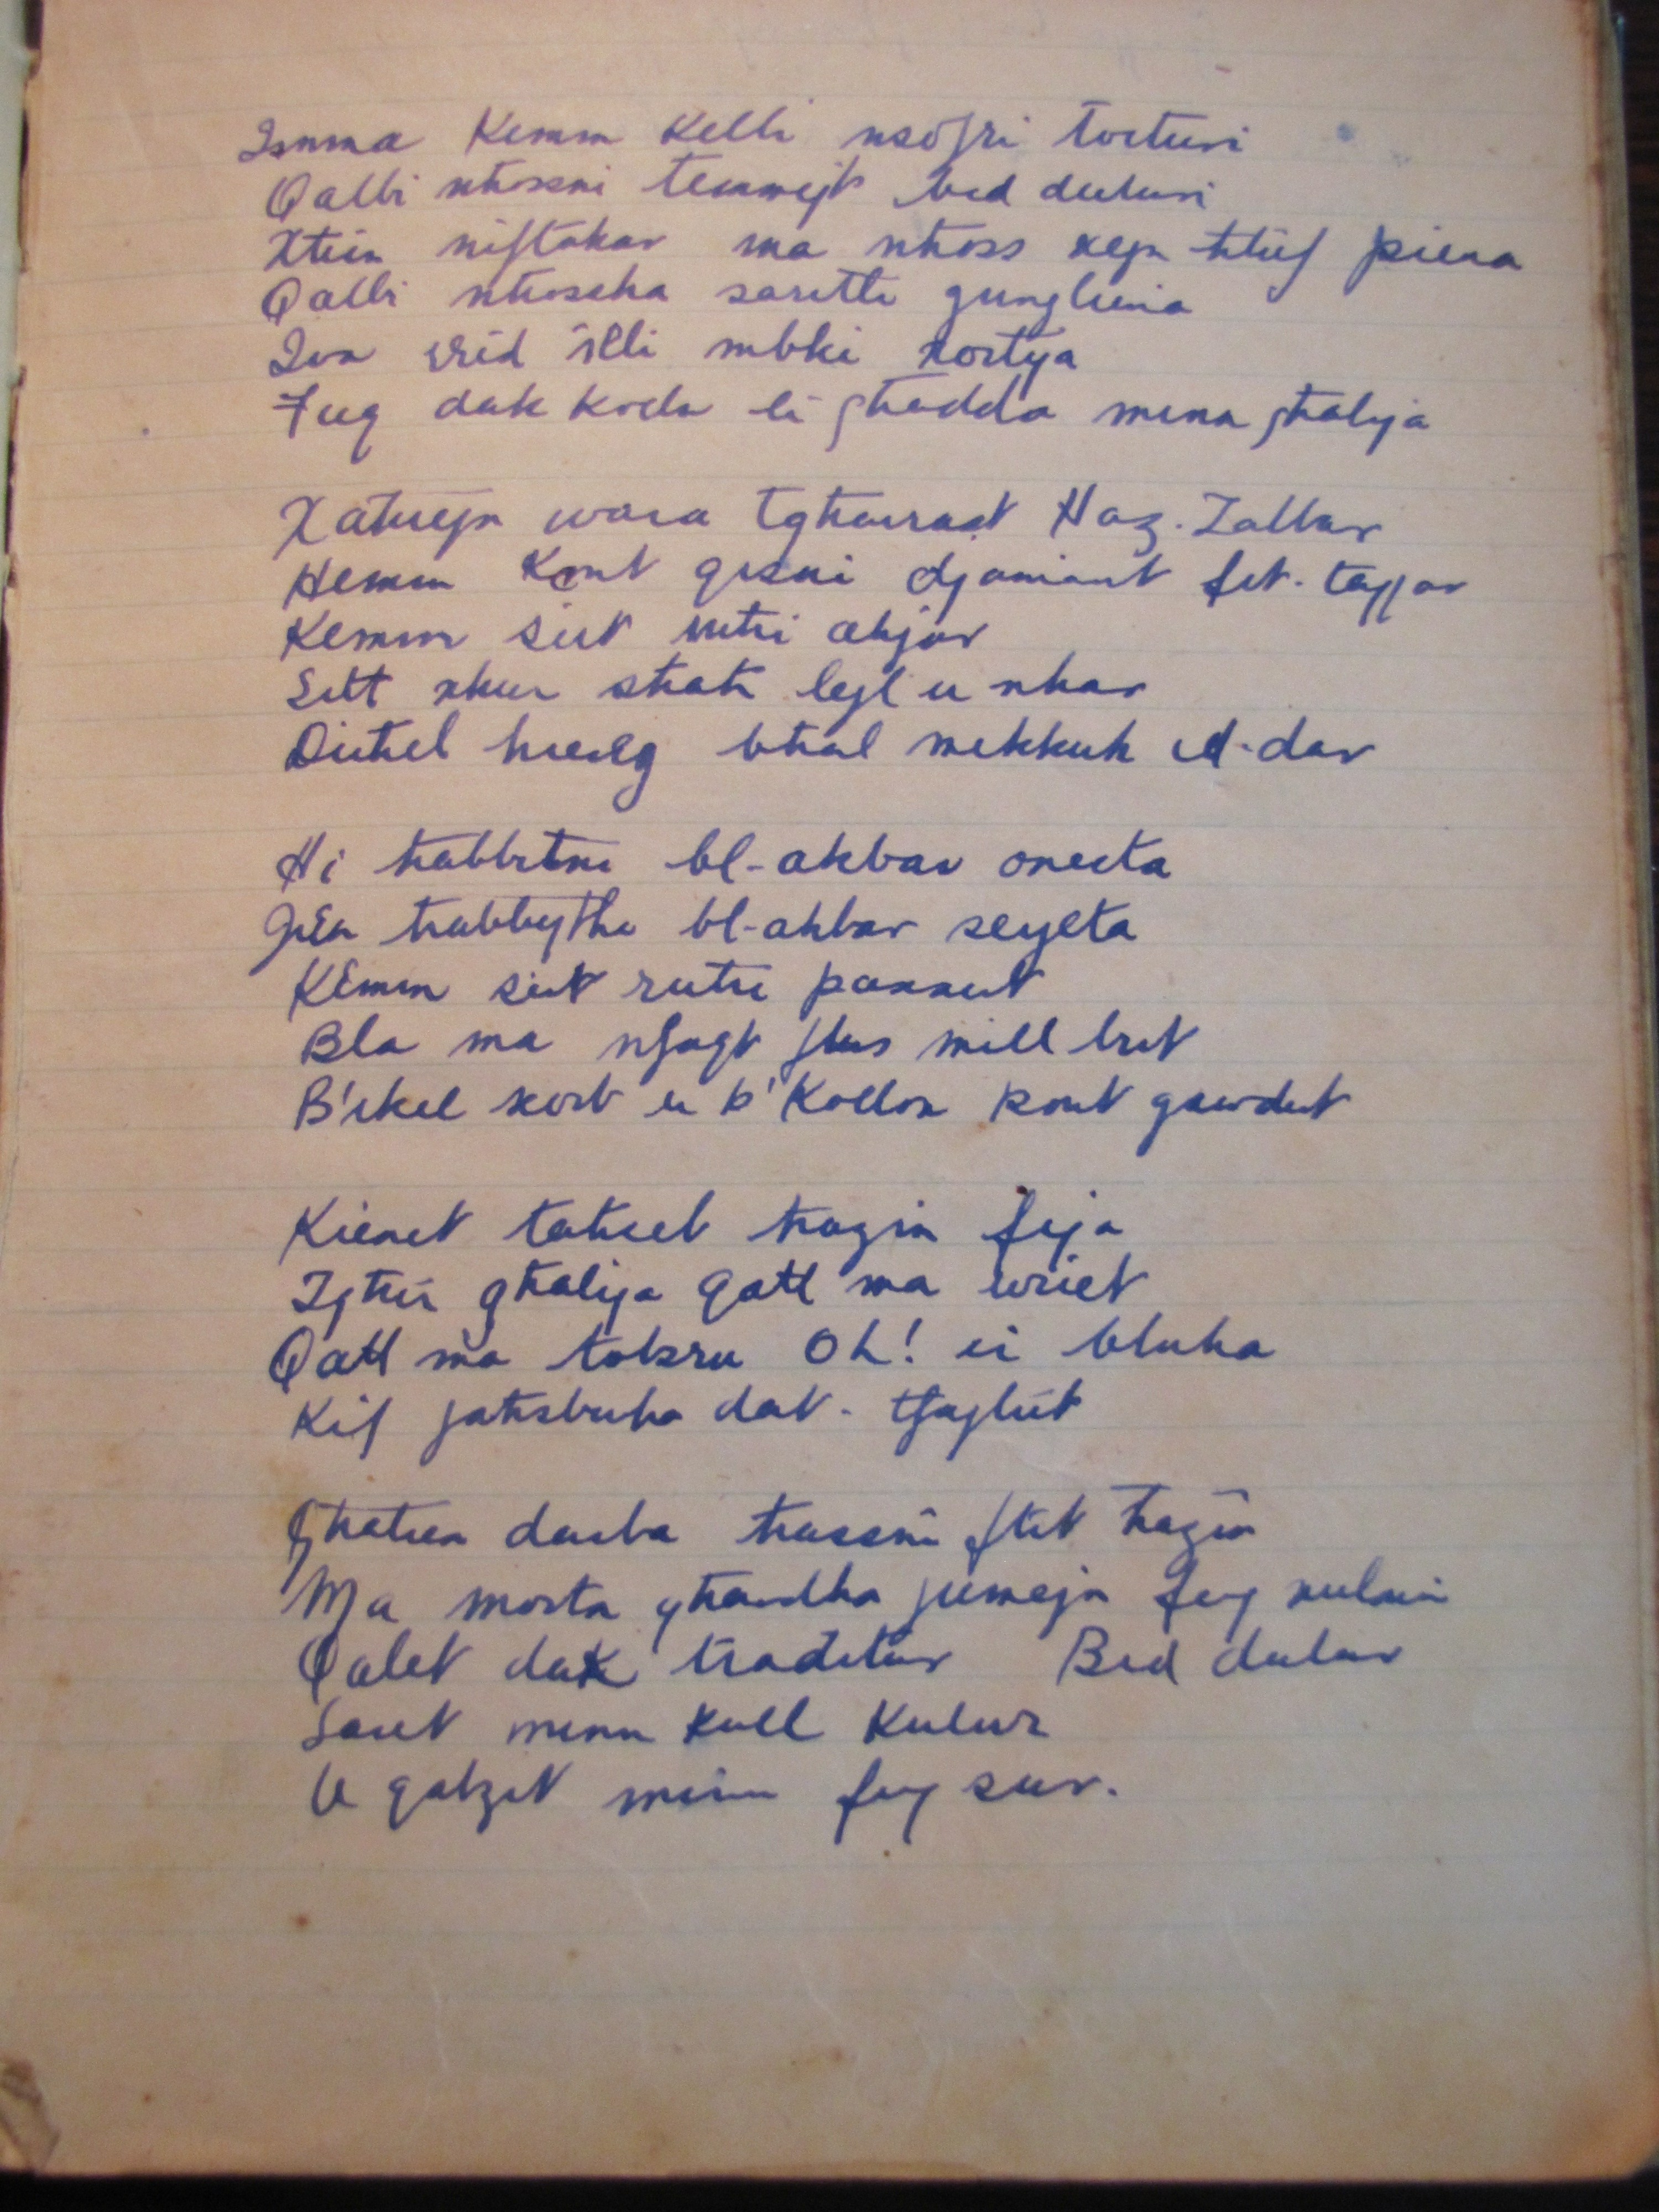 Imma Kemm Kelli nsofri torturi
Qalbi nhossni temmejt bid duluri
Xhin niftakar ma nhoss xejn hlief piena
Qalbi nhossha saretli gunglina
Jien irrid illi mbki xortija
Fuq dak kodu li ghadda minn ghalija
Xahrejn wara tgharraft Haz-Zabbar
Hemm Kont qisni djamant fit-tapjar
Kemm sirt mhi ahjar
Sitt xhur shah lejl u nhar
Dichel hiereg bhal mekkuk id-dar
Hi habbitni bl-akbar onesta
Jien habbejtha bl-akbar serjeta
Kemm sirt ruhi pannut
Bla ma nfaqt flus mill but
B'ikel xorb u b'Kollox kont gawdut
Kienet tahseb hazin fija
Ighir ghalija qatt ma wriet
Qatt ma tobzru Oh! li bluha
Kif jahsbuha dat-tfajliet
Ghalhen darba hassni ftit hazin
Ma mortx ghandha jumejn feq xulxin
Qalet dak traditur Bid dulur
Saret minn kull Kulur
U qabzit minn fuq sur.